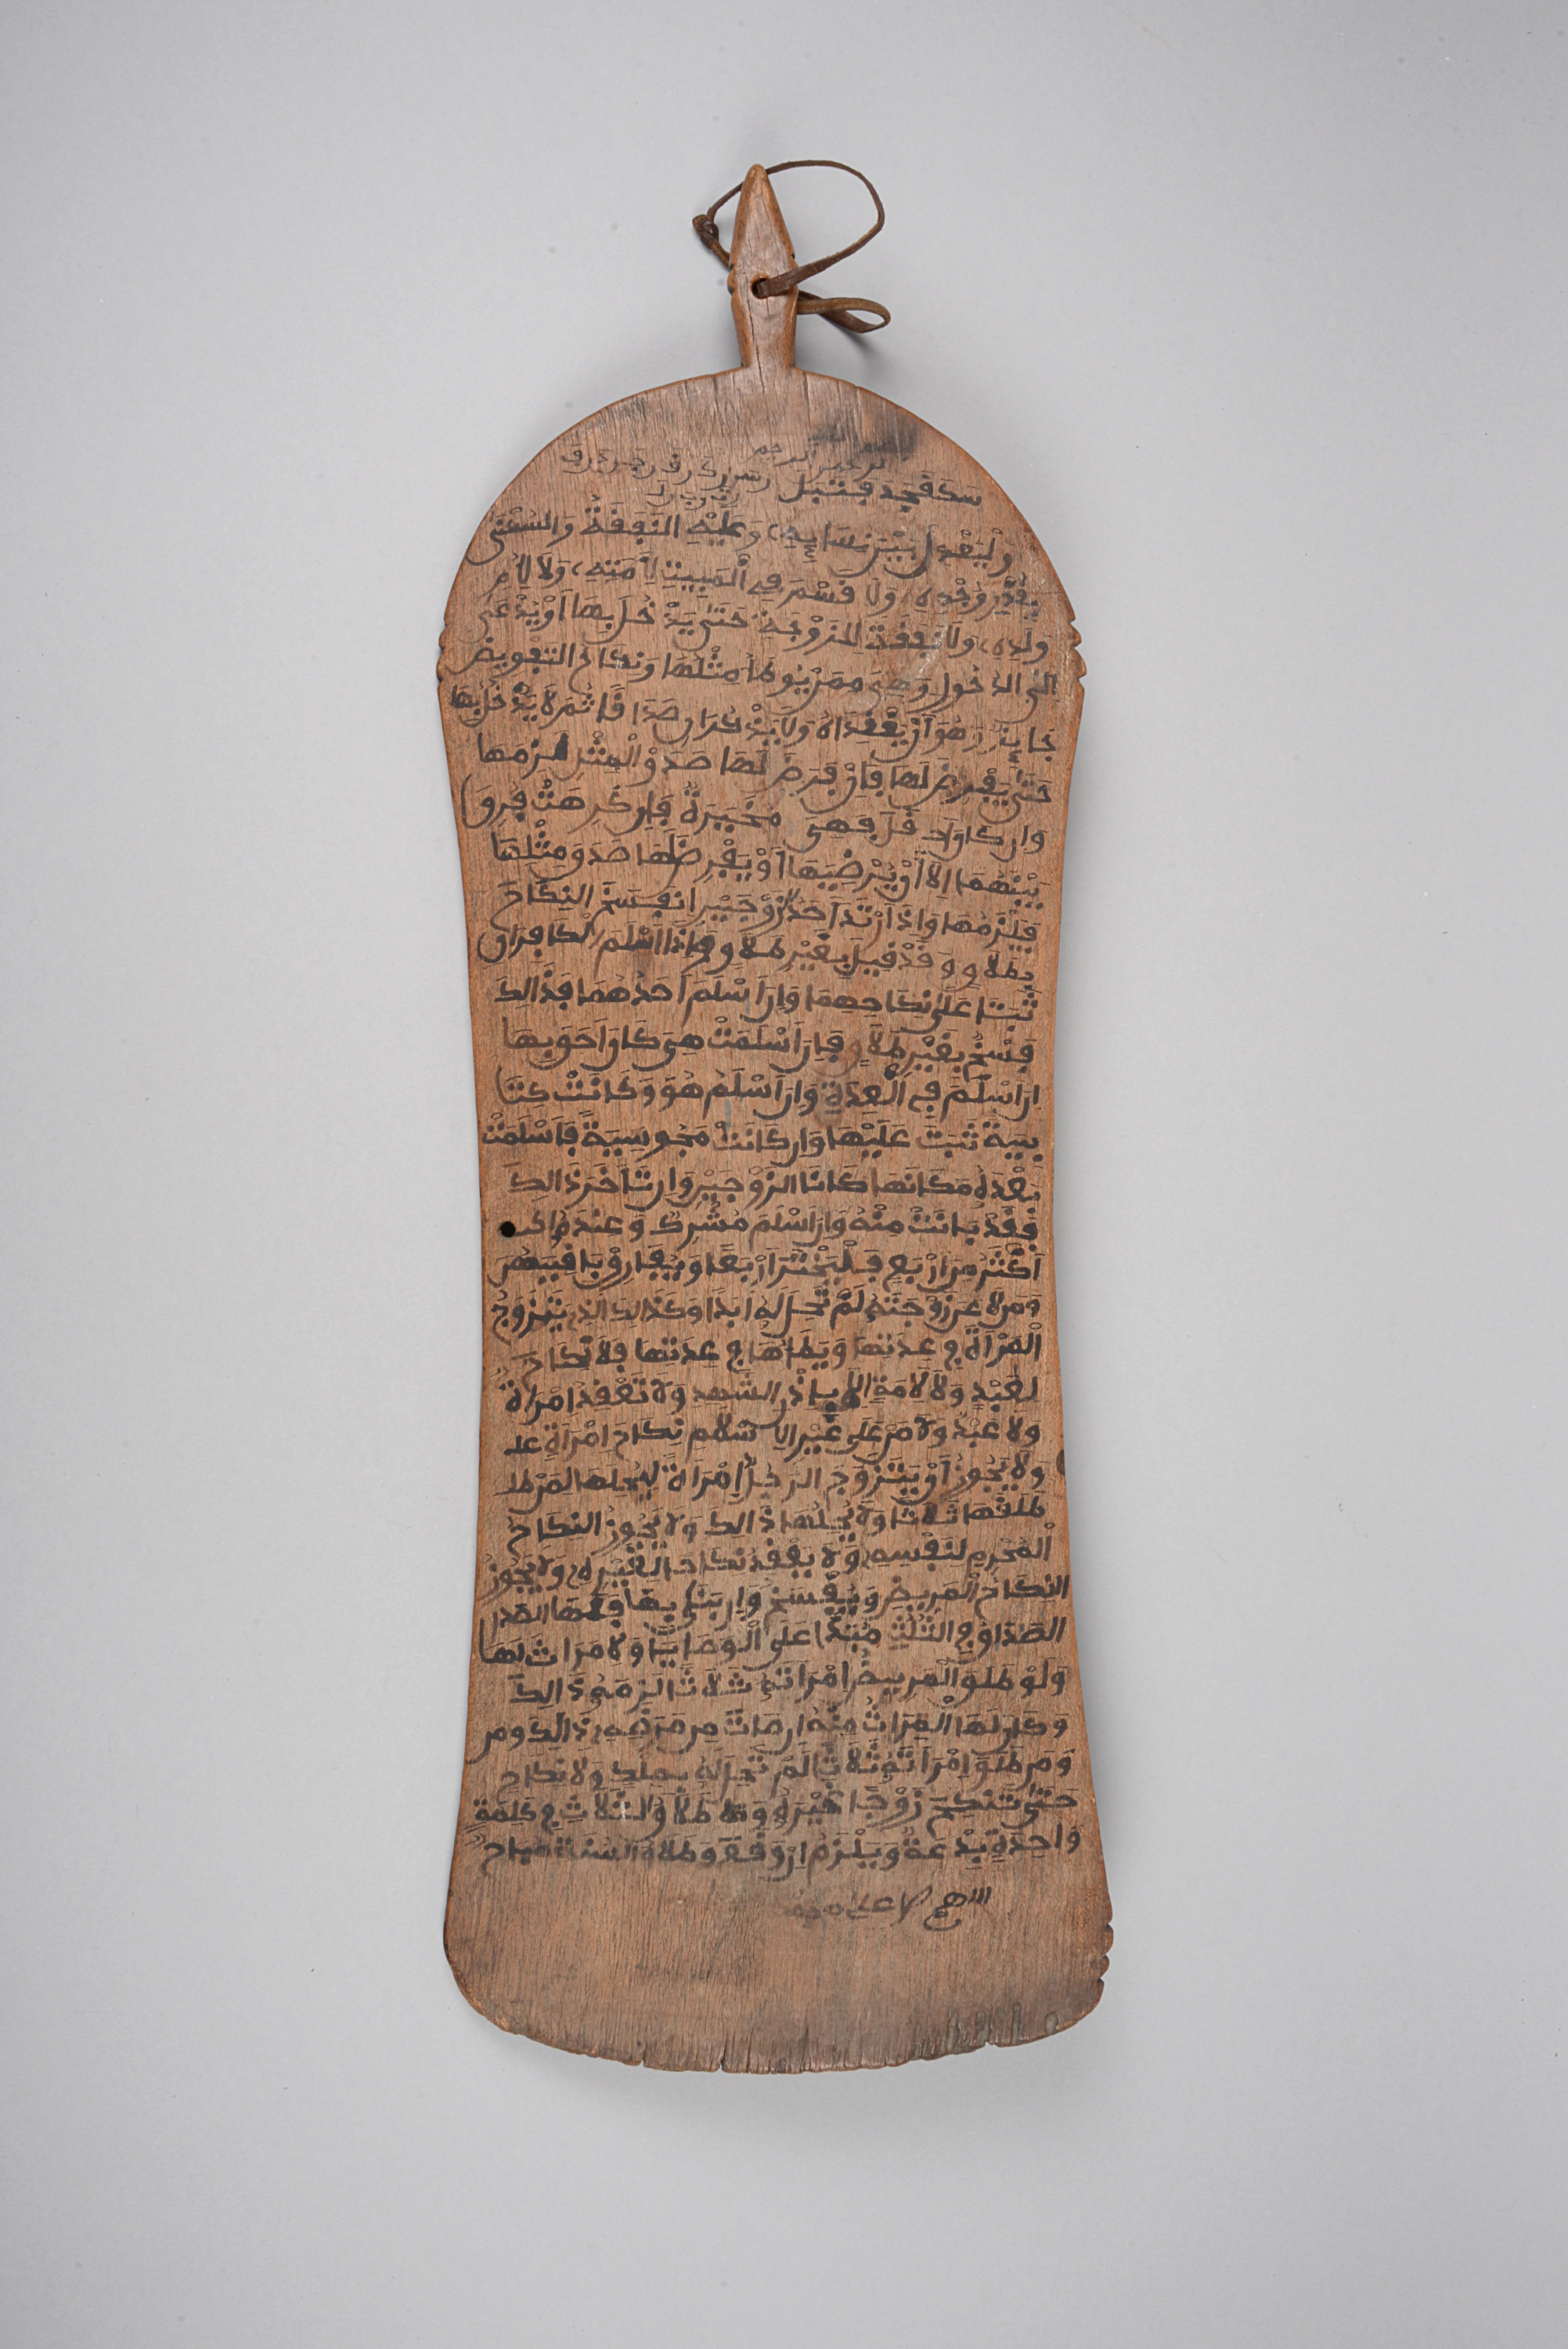 الرحمن الرحيم
وليعدل بين نسايه وعليه النفقة والسكنى
بقدر وجده ولا قسم في المبيت لأمته ولا لأم
ولده ولا نفقة للزوجة حتى يدخل بها أو يدعى
الى الدخول وهي ممن يوطأ مثلها ونكاح التفويض
جايز وهو أن يعقداه ولا يذكران صداقا ثم لا يدخل بها
حتى يفرض لها فإن فرض لها صدو المثل لزمها
وان كان اقل فهي مخيرة فإن كرهت فرق
بينهما إلا أن يرضيها أو يفرض لها صدو مثلها
فيلزمها وإذا ارتد أحد زوجين انفسخ النكاح
بطلاق وقد قيل بغير طلاق وإذا أسلم الكافران
ثبتا على نكاحهما وإن أسلم أحدهما فذالك
فسخ بغير طلاق فإن أسلمت هي كان احق بها
ان أسلم في العدة وإن أسلم هو وكانت كتا
بية ثبت عليها وإن كانت مجوسية فأسلمت
بعده مكانها كانا الزوجين وإن تأخر ذالك
فقد بانت منه وإن أسلم مشرك وعنده
أكثر من أربع فليختر أربعا ويفارق باقيهن
ومن لاعن زوجته لم تحل له أبدا وكذالك الذي يتزوج
المرأة في عدتها ويطأها في عدتها فلا نكاح
لعبد ولا لأمة إلا بإذن السيد ولا تعقد امرأة
ولا عبد ولا من على غير الإسلام نكاح امرأة
ولا يجوز أن يتزوج الرجل امرأة ليحلها لمن طلـ
طلقها ثلاثا ولا يحلها ذالك ولا يجوز النكاح
المحرم لنفسه ولا يعقد نكاحا لغيره ولا يجوز
النكاح المريض ويفسخ وإن بنى بها فلها الصدا
الصداق في الثلث مبدأ على الوصايا ولا مراث لها
ولو طلق المريض امرأته ثلاثا لزمه ذالك
وكان لها المراث منه ان مات من مرضه ذالك ومن
ومن طلق امرأته ثلاثا لم تحل له بملك ولا نكاح
حتى تنكح زوجا غيره وطلاق الثلاث في كلمة
واحدة بدعة ويلزم إن وقع وطلاق السنة مباح